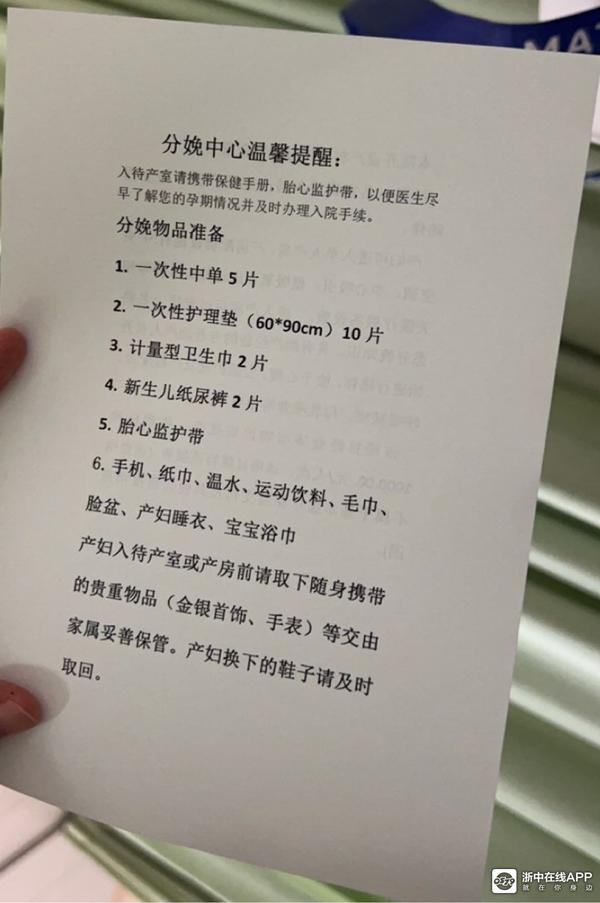 MAT
分娩中心温馨提醒：
入待产室请携带保健手册，胎心监护带，以便医生尽
早了解您的孕期情况并及时办理入院手续。
分娩物品准备
1. 一次性中单 5 片
2. 一次性护理垫（60*90cm）10 片
3. 计量型卫生巾 2 片
4. 新生儿纸尿裤 2 片
5. 胎心监护带
6. 手机、纸巾、温水、运动饮料、毛巾、
脸盆、产妇睡衣、宝宝浴巾
产妇入待产室或产房前请取下随身携带
的贵重物品（金银首饰、手表）等交由
家属妥善保管。产妇换下的鞋子请及时
取回。
浙中在线APP
就在你身边